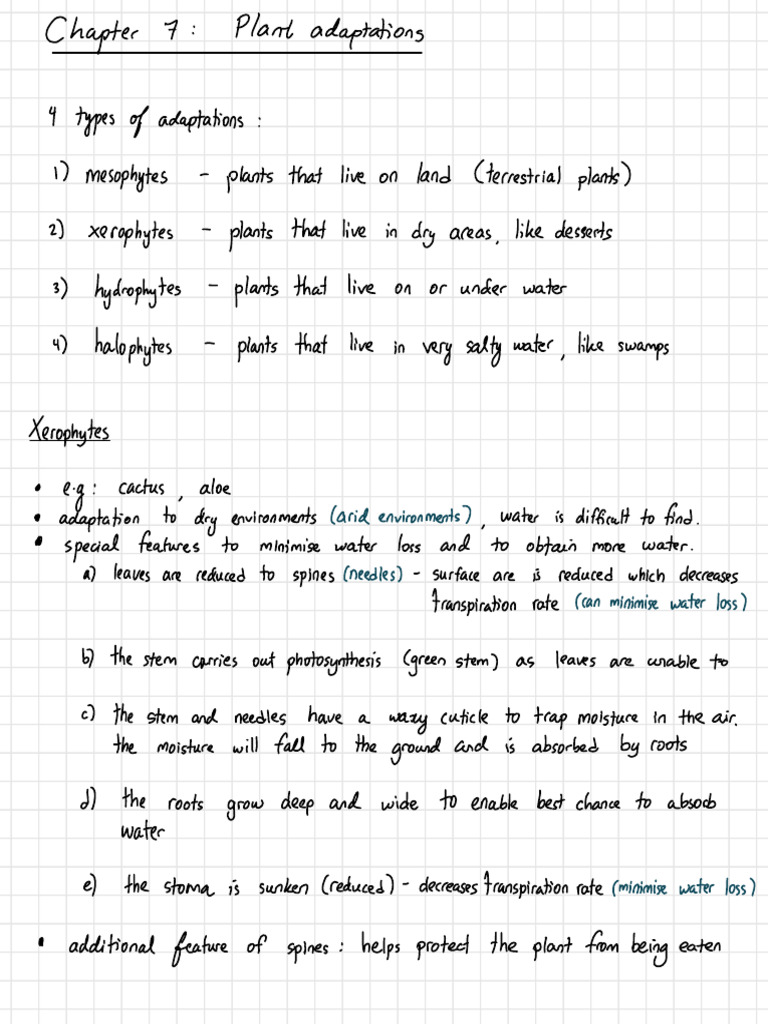 Chapter 7: Plant adaptations
4 types of adaptations:
1) mesophytes - plants that live on land (terrestrial plants)
2) xerophytes - plants that live in dry areas, like desserts
3) hydrophytes - plants that live on or under water
4) halophytes - plants that live in very salty water, like swamps
Xerophytes
• e.g: cactus, aloe
• adaptation to dry environments (arid environments), water is difficult to find.
• special features to minimise water loss and to obtain more water.
a) leaves are reduced to spines (needles) - surface are is reduced which decreases
transpiration rate (can minimise water loss)
b) the stem carries out photosynthesis (green stem) as leaves are unable to
c) the stem and needles have a waxy cuticle to trap moisture in the air.
the moisture will fall to the ground and is absorbed by roots
d) the roots grow deep and wide to enable best chance to absorb
water
e) the stoma is sunken (reduced) - decreases transpiration rate (minimise water loss)
• additional feature of spines: helps protect the plant from being eaten